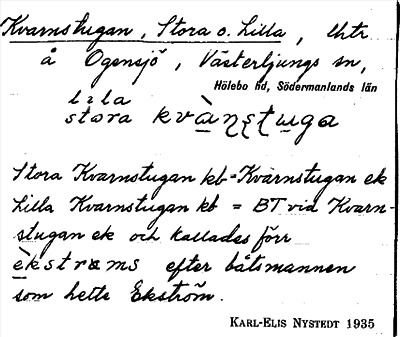 Kvarnstugan, Stora o. Lilla, Uhtr
å Ogensjö, Västerljungs sn,
Hölebo hd, Södermanlands län
lɩla
stora kvàn̥ʂʈuga
Stora Kvarnstugan kb = Kvarnstugan ek
Lilla Kvarnstugan kb = BT vid Kvarn-
stugan ek och kallades förr
èkstrams efter båtsmannen
som hette Ekström.
KARL-ELIS NYSTEDT 1935